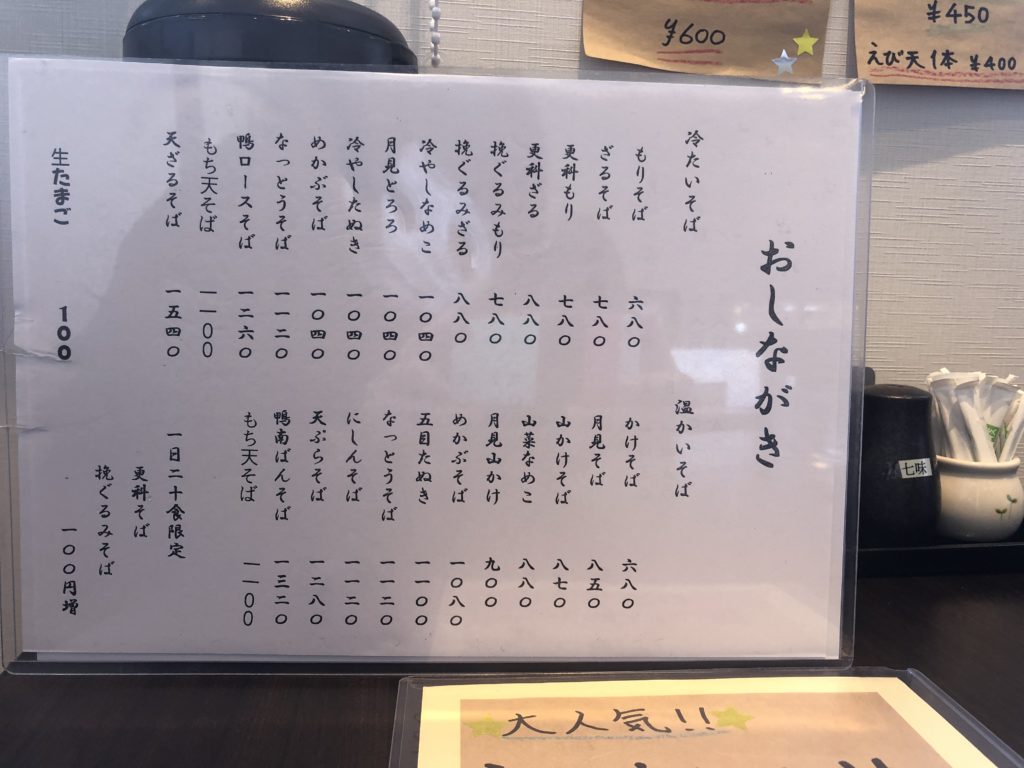 おしながき
冷たいそば
もりそば 六八〇
ざるそば 七八〇
更科もり 七八〇
更科ざる 八八〇
挽ぐるみもり 七八〇
挽ぐるみざる 八八〇
冷やしなめこ 一〇四〇
月見とろろ 一〇四〇
冷やしたぬき 一〇四〇
めかぶそば 一〇四〇
なっとうそば 一一二〇
鴨ロースそば 一二六〇
もち天そば 一一〇〇
天ざるそば 一五四〇
生たまご 100
温かいそば
かけそば 六八〇
月見そば 八五〇
山かけそば 八七〇
山菜なめこ 八八〇
月見山かけ 九〇〇
めかぶそば 一〇八〇
五目たぬき 一一〇〇
なっとうそば 一一二〇
にしんそば 一一二〇
天ぷらそば 一二八〇
鴨南ばんそば 一三二〇
もち天そば 一一〇〇
一日二十食限定
更科そば
挽ぐるみそば
一〇〇円増
¥600
¥450
えび天1本 ¥400
七味
大人気!!